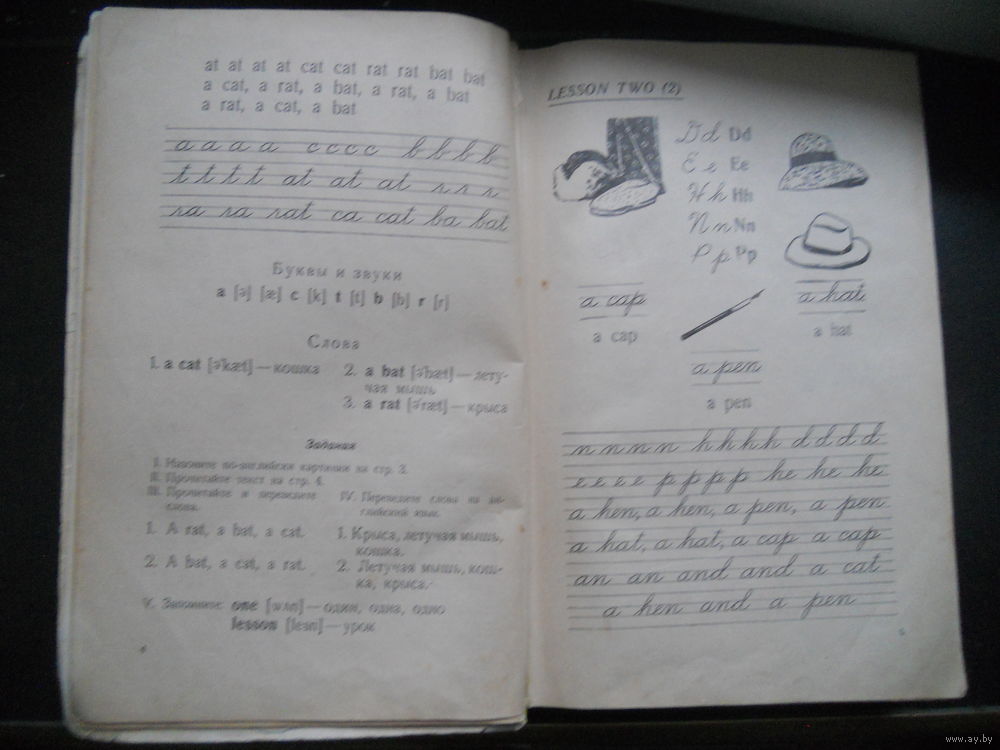 at at at at cat cat rat rat bat bat
a cat, a rat, a bat, a rat, a bat
a rat, a cat, a bat
a a a a c c c c b b b b
t t t t at at at r r r
ra ra rat ca cat ba bat
Буквы и звуки
a [ə] [æ] c [k] t [t] b [b] r [r]
Слова
1. a cat [ə'kæt] — кошка
2. a bat [ə'bæt] — лету-
чая мышь
3. a rat [ə'ræt] — крыса
Задания
I. Назовите по-английски картинки на стр. 3.
II. Прочитайте текст на стр. 4.
III. Прочитайте и переведите
слова.
1. A rat, a bat, a cat.
2. A bat, a cat, a rat.
IV. Переведите слова на ан-
глийский язык.
1. Крыса, летучая мышь,
кошка.
2. Летучая мышь, кош-
ка, крыса.
V. Запомните: one [wʌn] — один, одна, одно
lesson [lesn] — урок
4
LESSON TWO (2)
D d Dd
E e Ee
H h Hh
N n Nn
P p Pp
a cap
a cap
a hat
a hat
a pen
a pen
n n n n h h h h d d d d
e e e e p p p p he he he
a hen, a hen, a pen, a pen
a hat, a hat, a cap a cap
an an and and a cat
a hen and a pen
5
www.ay.by